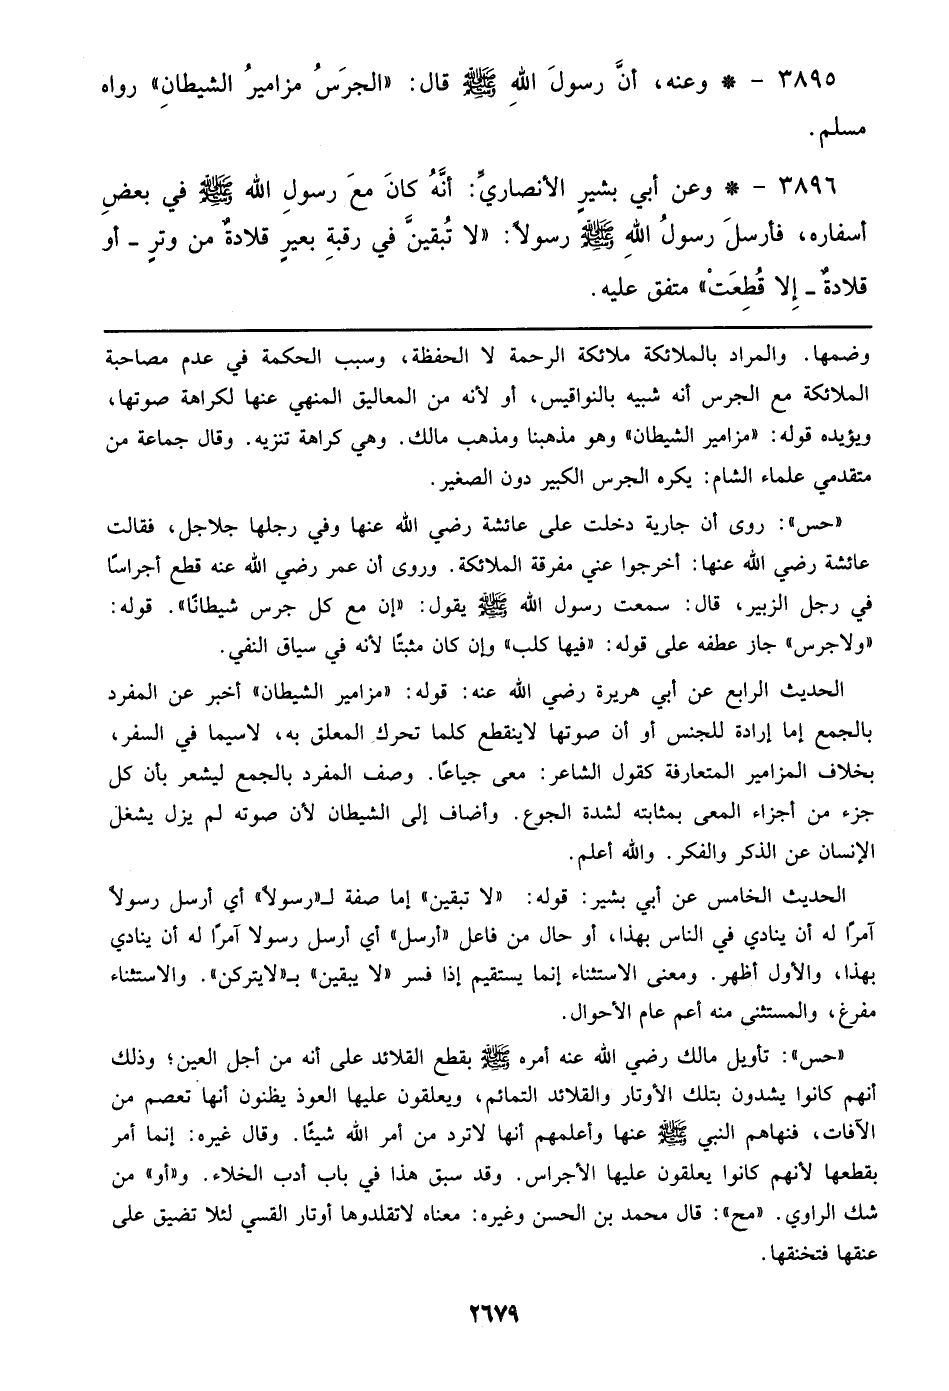 ٣٨٩٥ - * وعنه، أنَّ رسولَ اللهِ ﷺ قال: «الجرَسُ مزاميرُ الشيطانِ» رواه
مسلم.
٣٨٩٦ - * وعن أبي بشيرٍ الأنصاريِّ: أنَّهُ كانَ معَ رسولِ الله ﷺ في بعضِ
أسفاره، فأرسلَ رسولُ اللهِ ﷺ رسولاً: «لا تُبقينَّ في رقبةِ بعيرٍ قلادةٌ من وترٍ ـ أو
قلادةٌ ـ إِلا قُطِعَتْ» متفق عليه.
وضمها. والمراد بالملائكة ملائكة الرحمة لا الحفظة، وسبب الحكمة في عدم مصاحبة
الملائكة مع الجرس أنه شبيه بالنواقيس، أو لأنه من المعاليق المنهي عنها لكراهة صوتها،
ويؤيده قوله: «مزامير الشيطان» وهو مذهبنا ومذهب مالك. وهي كراهة تنزيه. وقال جماعة من
متقدمي علماء الشام: يكره الجرس الكبير دون الصغير.
«حس»: روى أن جارية دخلت على عائشة رضي الله عنها وفي رجلها جلاجل، فقالت
عائشة رضي الله عنها: أخرجوا عني مفرقة الملائكة. وروى أن عمر رضي الله عنه قطع أجراسًا
في رجل الزبير، قال: سمعت رسول الله ﷺ يقول: «إن مع كل جرس شيطانًا». قوله:
«ولاجرس» جاز عطفه على قوله: «فيها كلب» وإن كان مثبتًا لأنه في سياق النفي.
الحديث الرابع عن أبي هريرة رضي الله عنه: قوله: «مزامير الشيطان» أخبر عن المفرد
بالجمع إما إرادة للجنس أو أن صوتها لاينقطع كلما تحرك المعلق به، لاسيما في السفر،
بخلاف المزامير المتعارفة كقول الشاعر: معى جياعًا. وصف المفرد بالجمع ليشعر بأن كل
جزء من أجزاء المعى بمثابته لشدة الجوع. وأضاف إلى الشيطان لأن صوته لم يزل يشغل
الإنسان عن الذكر والفكر. والله أعلم.
الحديث الخامس عن أبي بشير: قوله: «لا تبقين» إما صفة لـ«رسولاً» أي أرسل رسولاً
آمرًا له أن ينادي في الناس بهذا، أو حال من فاعل «أرسل» أي أرسل رسولا آمرًا له أن ينادي
بهذا، والأول أظهر. ومعنى الاستثناء إنما يستقيم إذا فسر «لا يبقين» بـ«لايتركن». والاستثناء
مفرغ، والمستثنى منه أعم عام الأحوال.
«حس»: تأويل مالك رضي الله عنه أمره ﷺ بقطع القلائد على أنه من أجل العين؛ وذلك
أنهم كانوا يشدون بتلك الأوتار والقلائد التمائم، ويعلقون عليها العوذ يظنون أنها تعصم من
الآفات، فنهاهم النبي ﷺ عنها وأعلمهم أنها لاترد من أمر الله شيئًا. وقال غيره: إنما أمر
بقطعها لأنهم كانوا يعلقون عليها الأجراس. وقد سبق هذا في باب أدب الخلاء. و«أو» من
شك الراوي. «مح»: قال محمد بن الحسن وغيره: معناه لاتقلدوها أوتار القسي لئلا تضيق على
عنقها فتخنقها.
٢٦٧٩